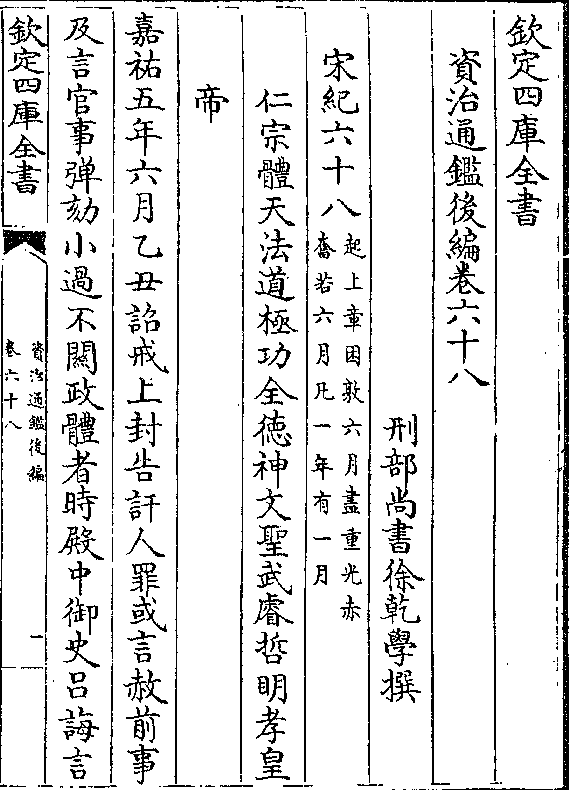 欽定四庫全書
資治通鑑後編卷六十八
刑部尚書徐乾學撰
宋紀六十八起上章困敦六月盡重光赤
奮若六月凡一年有一月
仁宗體天法道極功全徳神文聖武睿哲明孝皇
帝
嘉祐五年六月乙丑詔戒上封告訐人罪或言赦前事
及言官事弹劾小過不闗政體者時殿中御史吕誨言
欽定四庫全書
資治通鑑後編
卷六十八
一